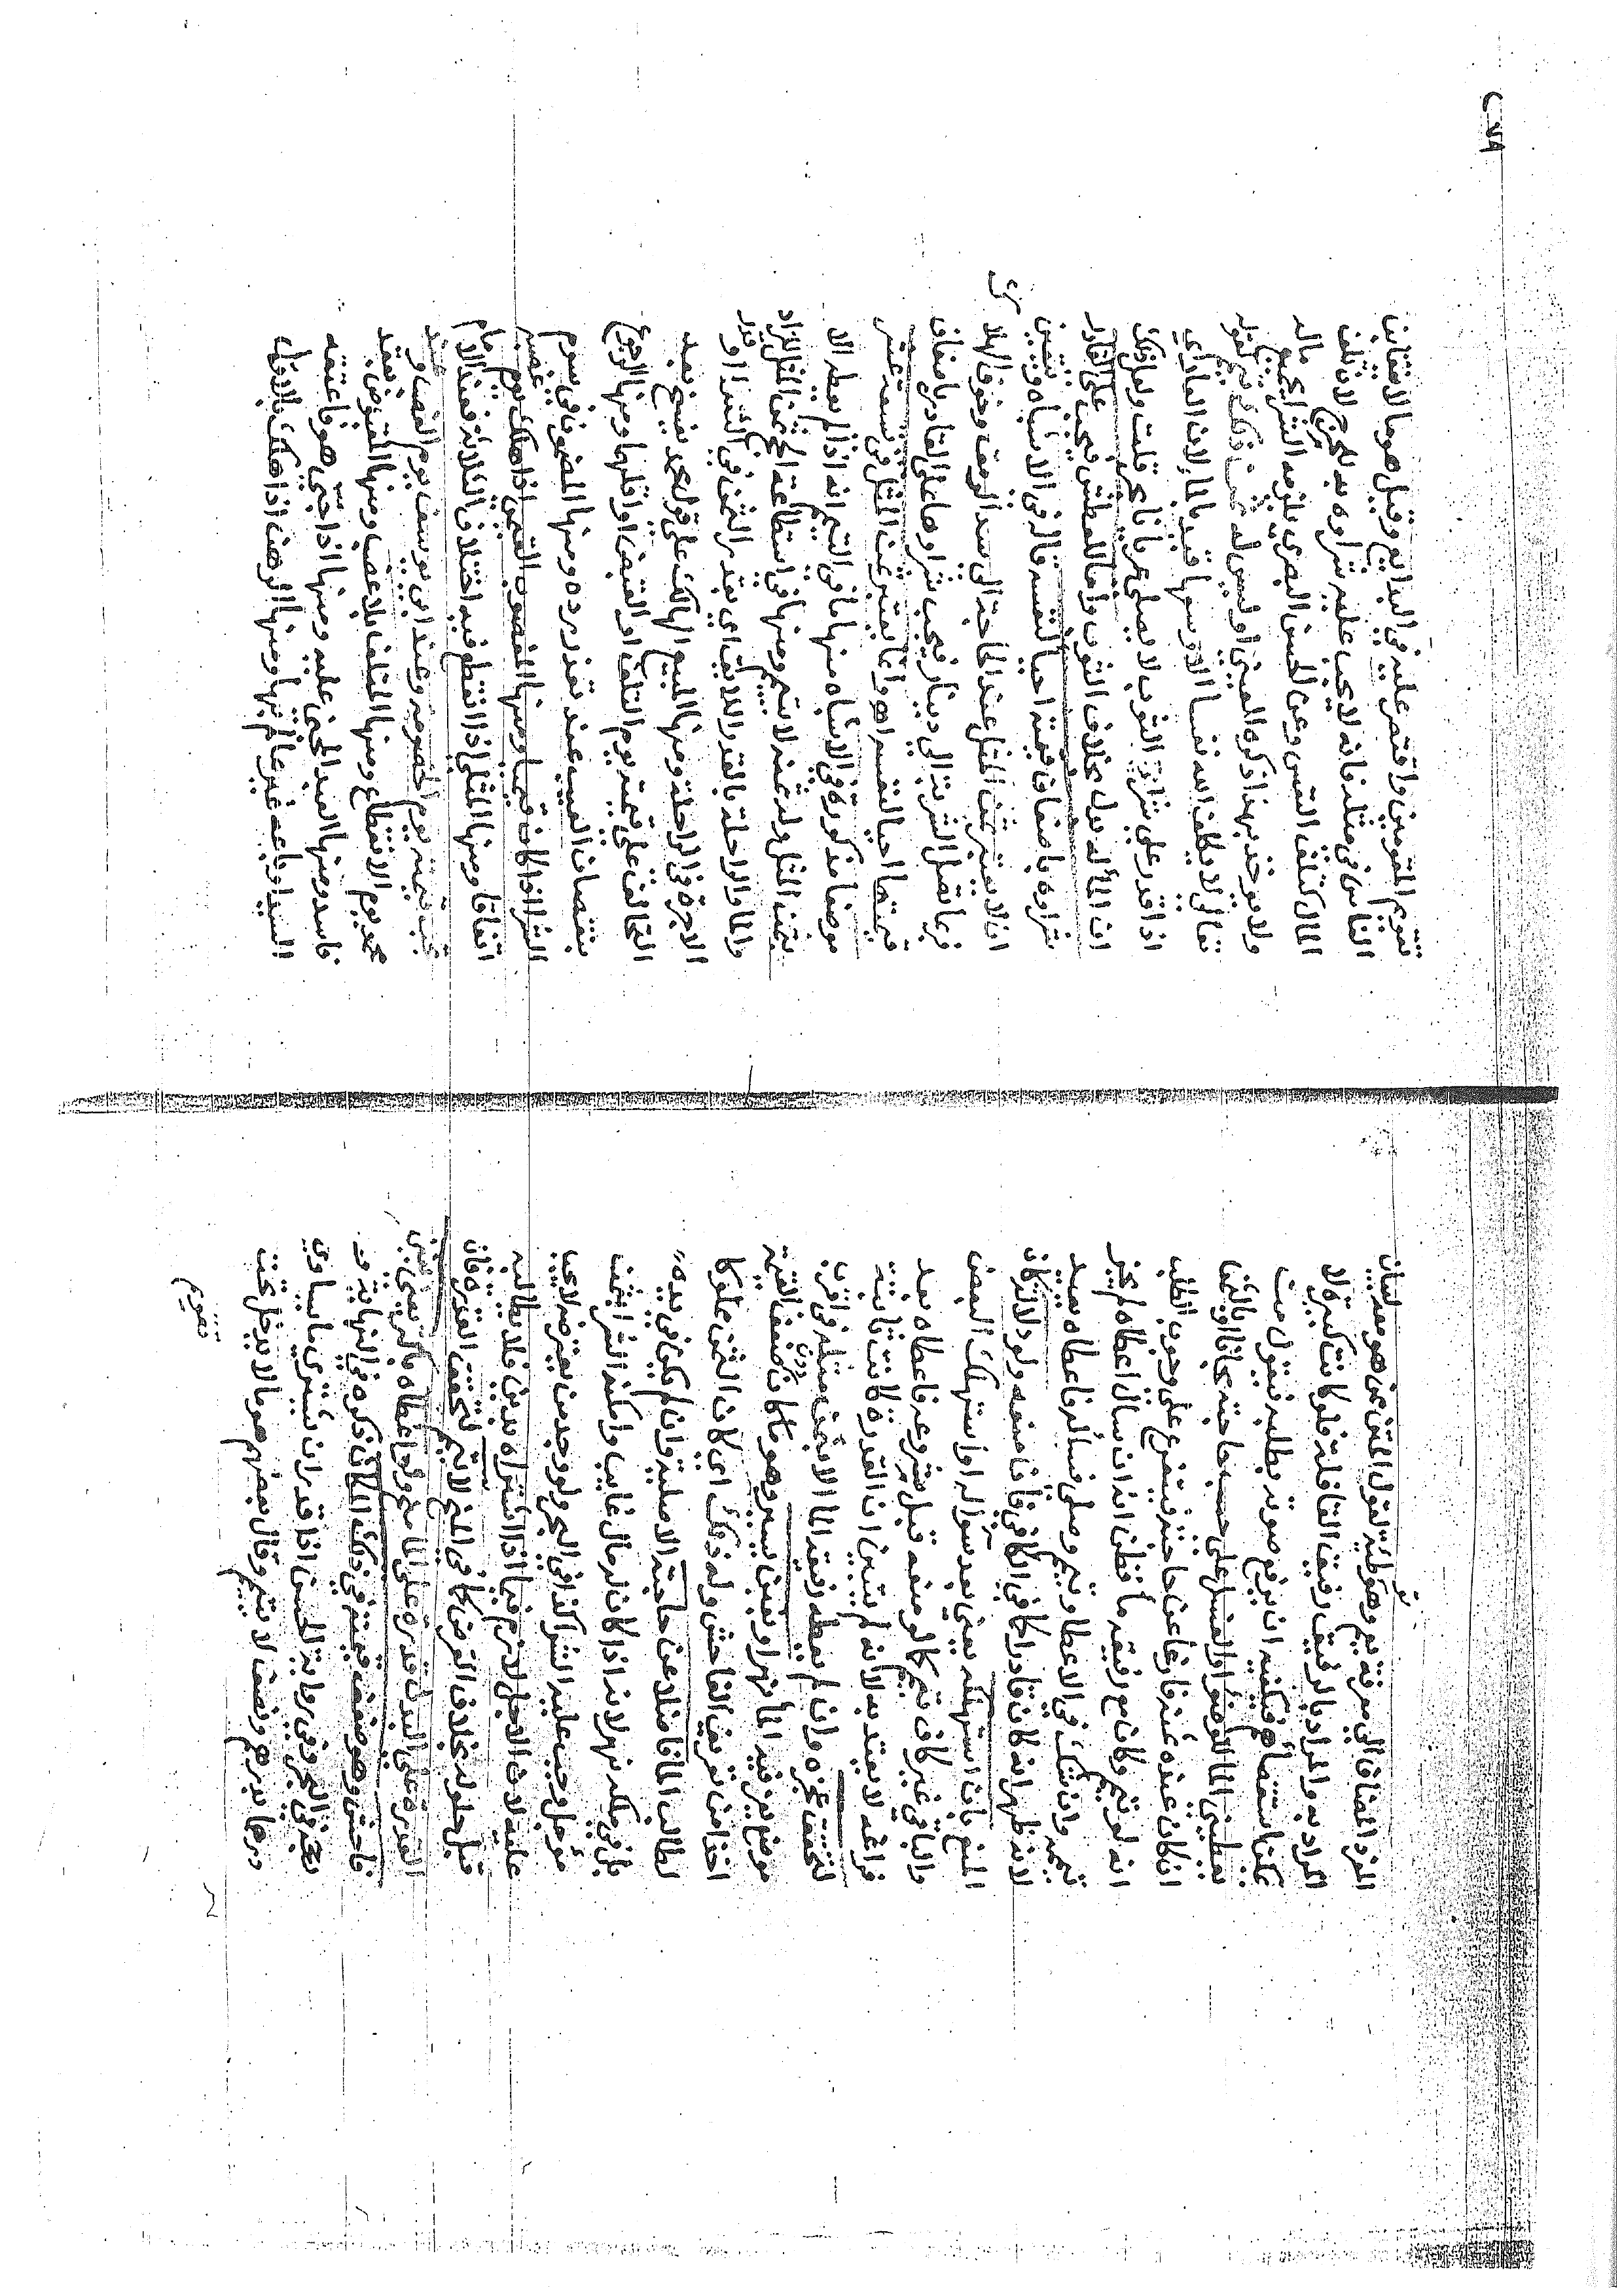 المضاف الى معرفة يعم لقول المتن ممن هو معه فان
المراد به والمراد بالرفيق رفيق القافلة فلو كانت كبيرة لا
يمكنه استقصاؤهم فيكفيه ان يرفع صوته بطلبه فيقول من
يعطيني الما للوضوء او الغسل على حسب حاجته مجانا او بالثمن
ان كان عنده فارغا عن حاجته فيتفرع على وجوب الطلب
انه لو تيمم وكان مع رفيقه ما فظن انه ان سال اعطاه لم يجز
تيممه وان شك في الاعطا وتيمم وصلى فسأله فاعطاه يعيد
لانه ظهر انه كان قادرا كما في الكافي فان منعه ولو دلالة كان
المنع بان استهلكه يعني بعد سواله او استهلك البعض
والباقي غير كاف تيمم كما لو منعه قبل شروعه فاعطاه بعد
فراغه لا يعتد به لانه لم يتبين ان القدرة كانت ثابتة
لتحقق عجزه وان لم يعطه رفيقه الما الا بثمن مثله في اقرب
موضع يعز فيه الما نهر او بغبن يسير وهو ما كان دون ضعف القيمة
اخذا من تعريف الفاحش وله ذلك اي كان الثمن مملوكا
لطالب الما فاضلا عن حاجته الاصلية وان لم يكن في يده
بل في ملكه نهر لانه اذا كان له مال غايب وامكنه الشرا بثمن
مؤجل وجب عليه الشرا كذا في البحر ولو وجد من يقرضه لا يجب
عليه لان الاجل لازم فيما اذا اشتراه بدين فلا يطالبه
قبل حلوله بخلاف القرض كما في المنح لا يتيمم لتحقق القدرة فان
القدرة على البدل قدرة على الما منح ولو اعطاه باكثر يعني بغبن
فاحش وهو ضعف قيمته في ذلك المكان ذكره في النهاية
بحر وفي البحر وفي رواية الحسن اذا قدر ان يشتري ما يساوي
درهما بدرهم ونصف لا يتيمم وقال بعضهم هو ما لا يدخل تحت
تقويم
تقويم المقومين واقتصر عليه في البدايع وقيل هو ما لا يتغابن
الناس في مثله فانه لا يجب عليه شراوه به للحرج لان تلف
المال كتلف النفس وعن الحسن البصري يلزمه الشرا بجميع ماله
ولا يوخذ بهذا ذكره العيني او ليس له ثمن ذلك تيمم لقوله
تعالى لا يكلف الله نفسا الا وسعها قيد بالما لان العاري
اذا قدر على شرا الثوب لا يصلي عريانا بحر قلت ولعل ذلك
ان الما له بدل بخلاف الثوب واما للعطش فيجب على القادر
شراوه باضعاف قيمته احيا لنفسه قال في الاشباه وينبغي
ان لا يعتبر ثمن المثل عند الحاجة الى سد الرمق وخوف الهلاك
فربما تصل الشربة الى دينار فيجب شراوها على القادر باضعاف
قيمتها احيا لنفسه اه وانما يعتبر ثمن المثل في تسعة عشر
موضعا مذكورة في الاشباه منها ما في التيمم انه اذا لم يعطه الا
بثمن المثل وله ثمنه لا يتيمم ومنها في استطاعة الحج ثمن المثل للزاد
والما والراحلة بالقدر اللايق اي بقدر الثمن في الشرا وقدر
الاجرة في الراحلة ومنها المبيع الهالك على قول محمد يفسخ بعد
التحالف على قيمته يوم التلف او القبض او اقلها ومنها الرجوع
بنقصان العيب عند تعذر رده ومنها المقبوض في سوم
الشرا اذا كان قيميا ومنها المغصوب القيمي اذا هلك يوم غصبه
اتفاقا ومنها المثلي اذا انقطع فيه اختلاف الثلاثة فعند الامام
تجب قيمته يوم الخصومة وعند ابي يوسف يوم الغصب وعند
محمد يوم الانقطاع ومنها المتلف بلا غصب ومنها المقبوض بعقد
فاسد ومنها العبد المجني عليه ومنها اذا جنى هو فاعتقه
السيد او باعه غير عالم بها ومنها الرهن اذا هلك بالاقل